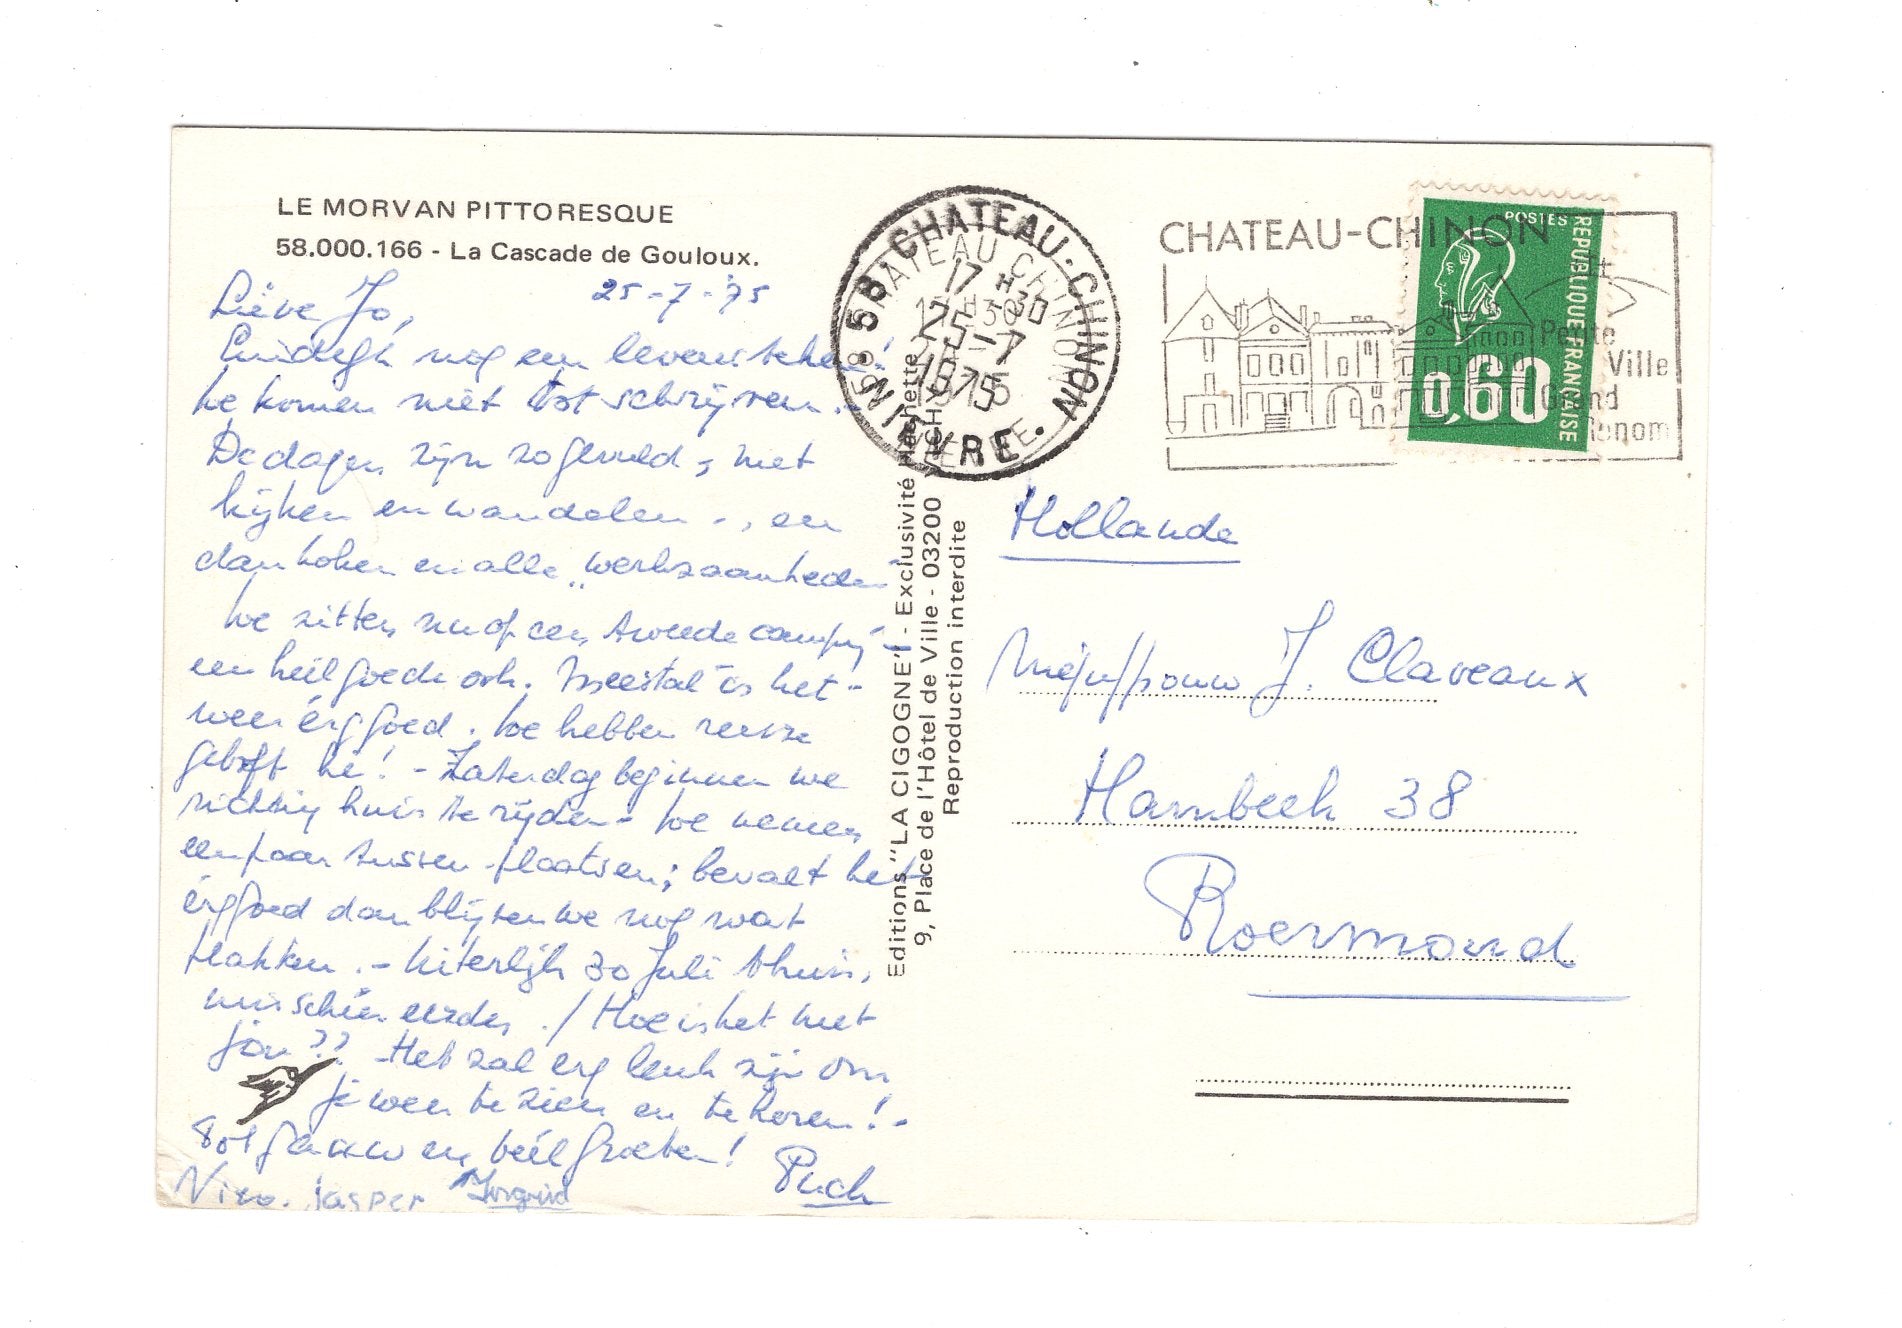 LE MORVAN PITTORESQUE
58.000.166 - La Cascade de Gouloux.
25-7-'75
Lieve Jo,
Eindelijk nog een levensteken!
We komen niet tot schrijven.-
De dagen zijn zo gevuld, met
kijken en wandelen -, en
dan koken en alle "werkzaamheden"
We zitten nu op een tweede camping -
een heel goede ook. Meestal is het -
weer érg goed. We hebben reuze
geboft hè! - Zaterdag beginnen we
richting huis te rijden - We nemen
een paar tussen-plaatsen; bevalt het
érg goed dan blijven we nog wat
plakken. - Uiterlijk 30 juli thuis,
misschien eerder. / Hoe is het met
jou?? - Het zal erg leuk zijn om
je weer te zien en te horen! -
Tot gauw en veel groeten!
Puck
Nico. Jasper Ingrid
Editions "LA CIGOGNE" - Exclusivité Hachette
9, Place de l'Hôtel de Ville - 03200 VICHY
Reproduction interdite
58 CHATEAU-CHINON
17 H30
25-7
1975
NIEVRE
CHATEAU-CHINON
Petite
Ville
Grand
Renom
POSTES
REPUBLIQUE FRANÇAISE
0,60
Hollande
Mejuffrouw J. Claveaux
Hambeek 38
Roermond